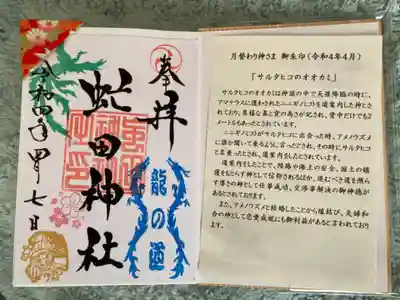 奉拝
虻田神社
龍の道
令和四年四月七日
月替わり神さま 御朱印(令和4年4月)
「サルタヒコのオオカミ」
サルタヒコのオオカミは神話の中で天孫降臨の時に、
アマテラスに遣わされたニニギノ(ミコト)を道案内した神とさ
れており、異様な鼻と背の高さが記され、背中だけでも2
メートルもあったとされています。
ニニギノ(ミコト)がサルタヒコに出会った時、アメノウズメ
に誰か聞いて来るように、言ったとされ、その時にサルタヒコ
と名乗ったとされ、道案内をしたとされています。
道案内をしたことで、陸路や海上の安全、国土の鎮
護をもたらす神として信仰されるほか、進むべき道を照ら
す導きの神として仕事成功、交渉事解決の御神徳が
あるとされております。
また、アメノウズメと結婚したことから縁結び、夫婦和
合の神として恋愛成就にも御利益があると言われており
ます。